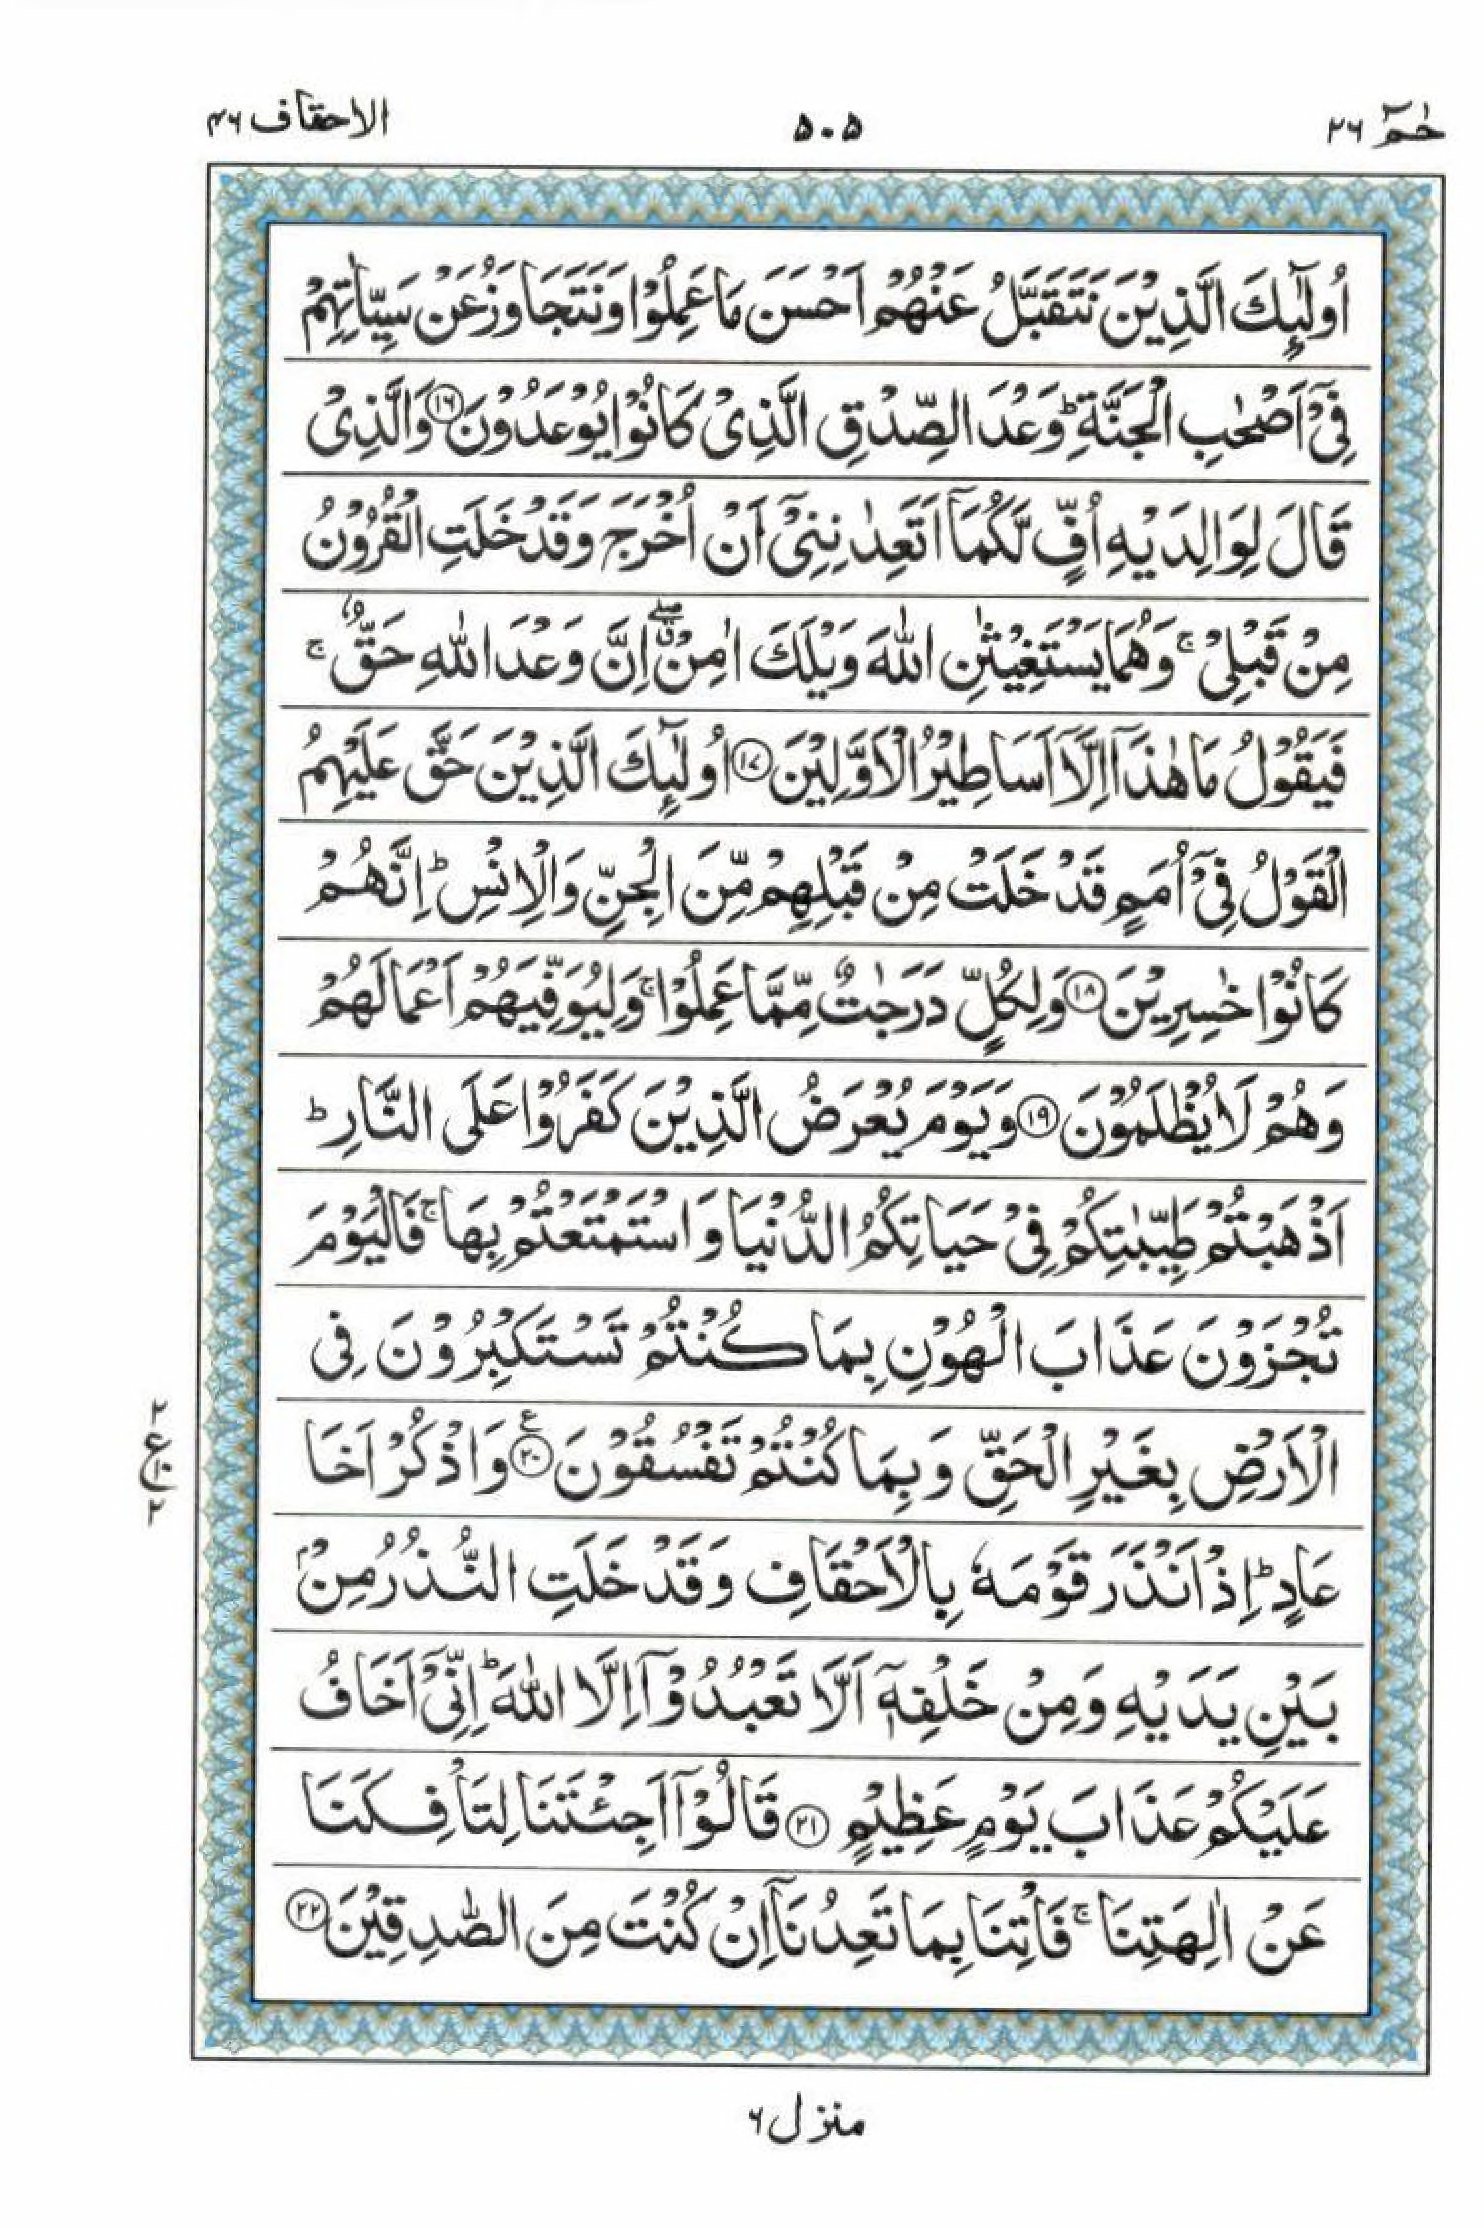 حٰمٓ ٢٦
۵۰۵
الاحقاف ۴۶
اُولٰٓئِكَ الَّذِيْنَ نَتَقَبَّلُ عَنْهُمْ اَحْسَنَ مَا عَمِلُوْا وَنَتَجَاوَزُ عَنْ سَيِّاٰتِهِمْ
فِيْٓ اَصْحٰبِ الْجَنَّةِ ؕ وَعْدَ الصِّدْقِ الَّذِيْ كَانُوْا يُوْعَدُوْنَ ١٦ وَالَّذِيْ
قَالَ لِوَالِدَيْهِ اُفٍّ لَّكُمَآ اَتَعِدٰنِنِيْٓ اَنْ اُخْرَجَ وَقَدْ خَلَتِ الْقُرُوْنُ
مِنْ قَبْلِيْ ۚ وَهُمَا يَسْتَغِيْثٰنِ اللّٰهَ وَيْلَكَ اٰمِنْ ۖۗ اِنَّ وَعْدَ اللّٰهِ حَقٌّ ۚ
فَيَقُوْلُ مَا هٰذَآ اِلَّآ اَسَاطِيْرُ الْاَوَّلِيْنَ ١٧ اُولٰٓئِكَ الَّذِيْنَ حَقَّ عَلَيْهِمُ
الْقَوْلُ فِيْٓ اُمَمٍ قَدْ خَلَتْ مِنْ قَبْلِهِمْ مِّنَ الْجِنِّ وَالْاِنْسِ ؕ اِنَّهُمْ
كَانُوْا خٰسِرِيْنَ ١٨ وَلِكُلٍّ دَرَجٰتٌ مِّمَّا عَمِلُوْا ۚ وَلِيُوَفِّيَهُمْ اَعْمَالَهُمْ
وَهُمْ لَا يُظْلَمُوْنَ ١٩ وَيَوْمَ يُعْرَضُ الَّذِيْنَ كَفَرُوْا عَلَى النَّارِ ؕ
اَذْهَبْتُمْ طَيِّبٰتِكُمْ فِيْ حَيَاتِكُمُ الدُّنْيَا وَاسْتَمْتَعْتُمْ بِهَا ۚ فَالْيَوْمَ
تُجْزَوْنَ عَذَابَ الْهُوْنِ بِمَا كُنْتُمْ تَسْتَكْبِرُوْنَ فِي
الْاَرْضِ بِغَيْرِ الْحَقِّ وَبِمَا كُنْتُمْ تَفْسُقُوْنَ ٢٠ ع وَاذْكُرْ اَخَا
عَادٍ ؕ اِذْ اَنْذَرَ قَوْمَهٗ بِالْاَحْقَافِ وَقَدْ خَلَتِ النُّذُرُ مِنْۢ
بَيْنِ يَدَيْهِ وَمِنْ خَلْفِهٖٓ اَلَّا تَعْبُدُوْٓا اِلَّا اللّٰهَ ؕ اِنِّيْٓ اَخَافُ
عَلَيْكُمْ عَذَابَ يَوْمٍ عَظِيْمٍ ٢١ قَالُوْٓا اَجِئْتَنَا لِتَاْفِكَنَا
عَنْ اٰلِهَتِنَا ۚ فَاْتِنَا بِمَا تَعِدُنَآ اِنْ كُنْتَ مِنَ الصّٰدِقِيْنَ ٢٢
٢
ع ١٠
٢
منزل ٦